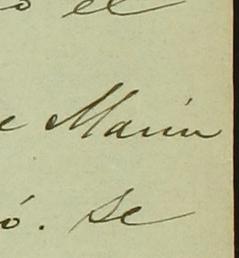 o el
e Marin
ó. Se